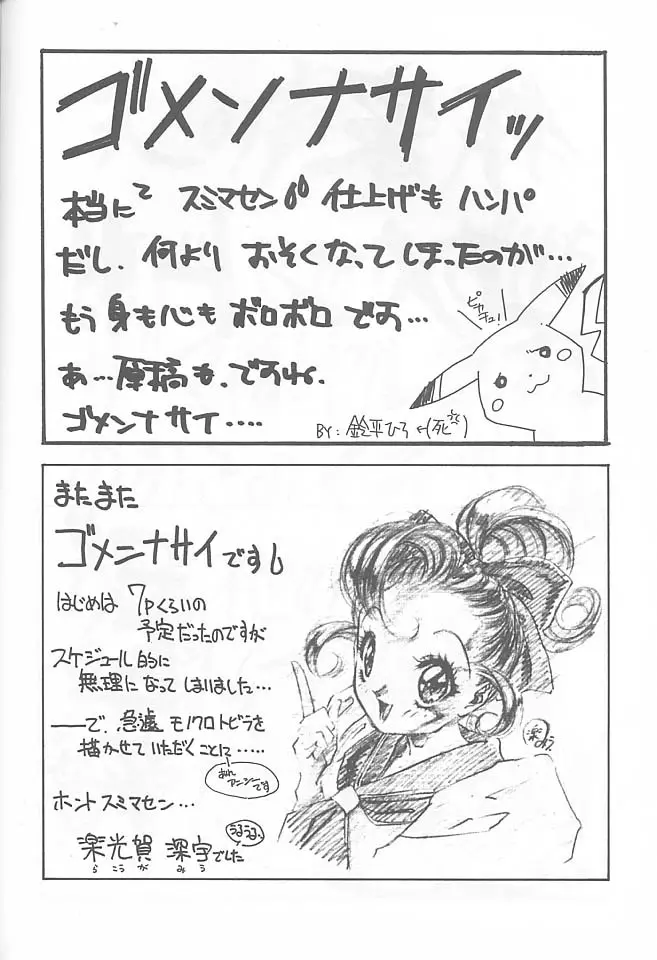 ゴメンナサイッ
本当にて スミマセン 仕上げも ハンパ
だし、何より おそくなってしまったのが…
もう 身も心も ボロボロ です…
あ…原稿も、ですね、
ゴメンナサイ….
ピカ
チュ!
BY: 鈴平ひろ ←(死)
またまた
ゴメンナサイです
はじめは 7Pくらいの
予定だったのですが
スケジュール的に
無理になって しまいました…
――で、急遽 モノクロトビラを
描かせて いただくことに……
アニシーです
ホント スミマセン…
楽光賀 深宇でした
らこうが みう
うるうる
楽
みう